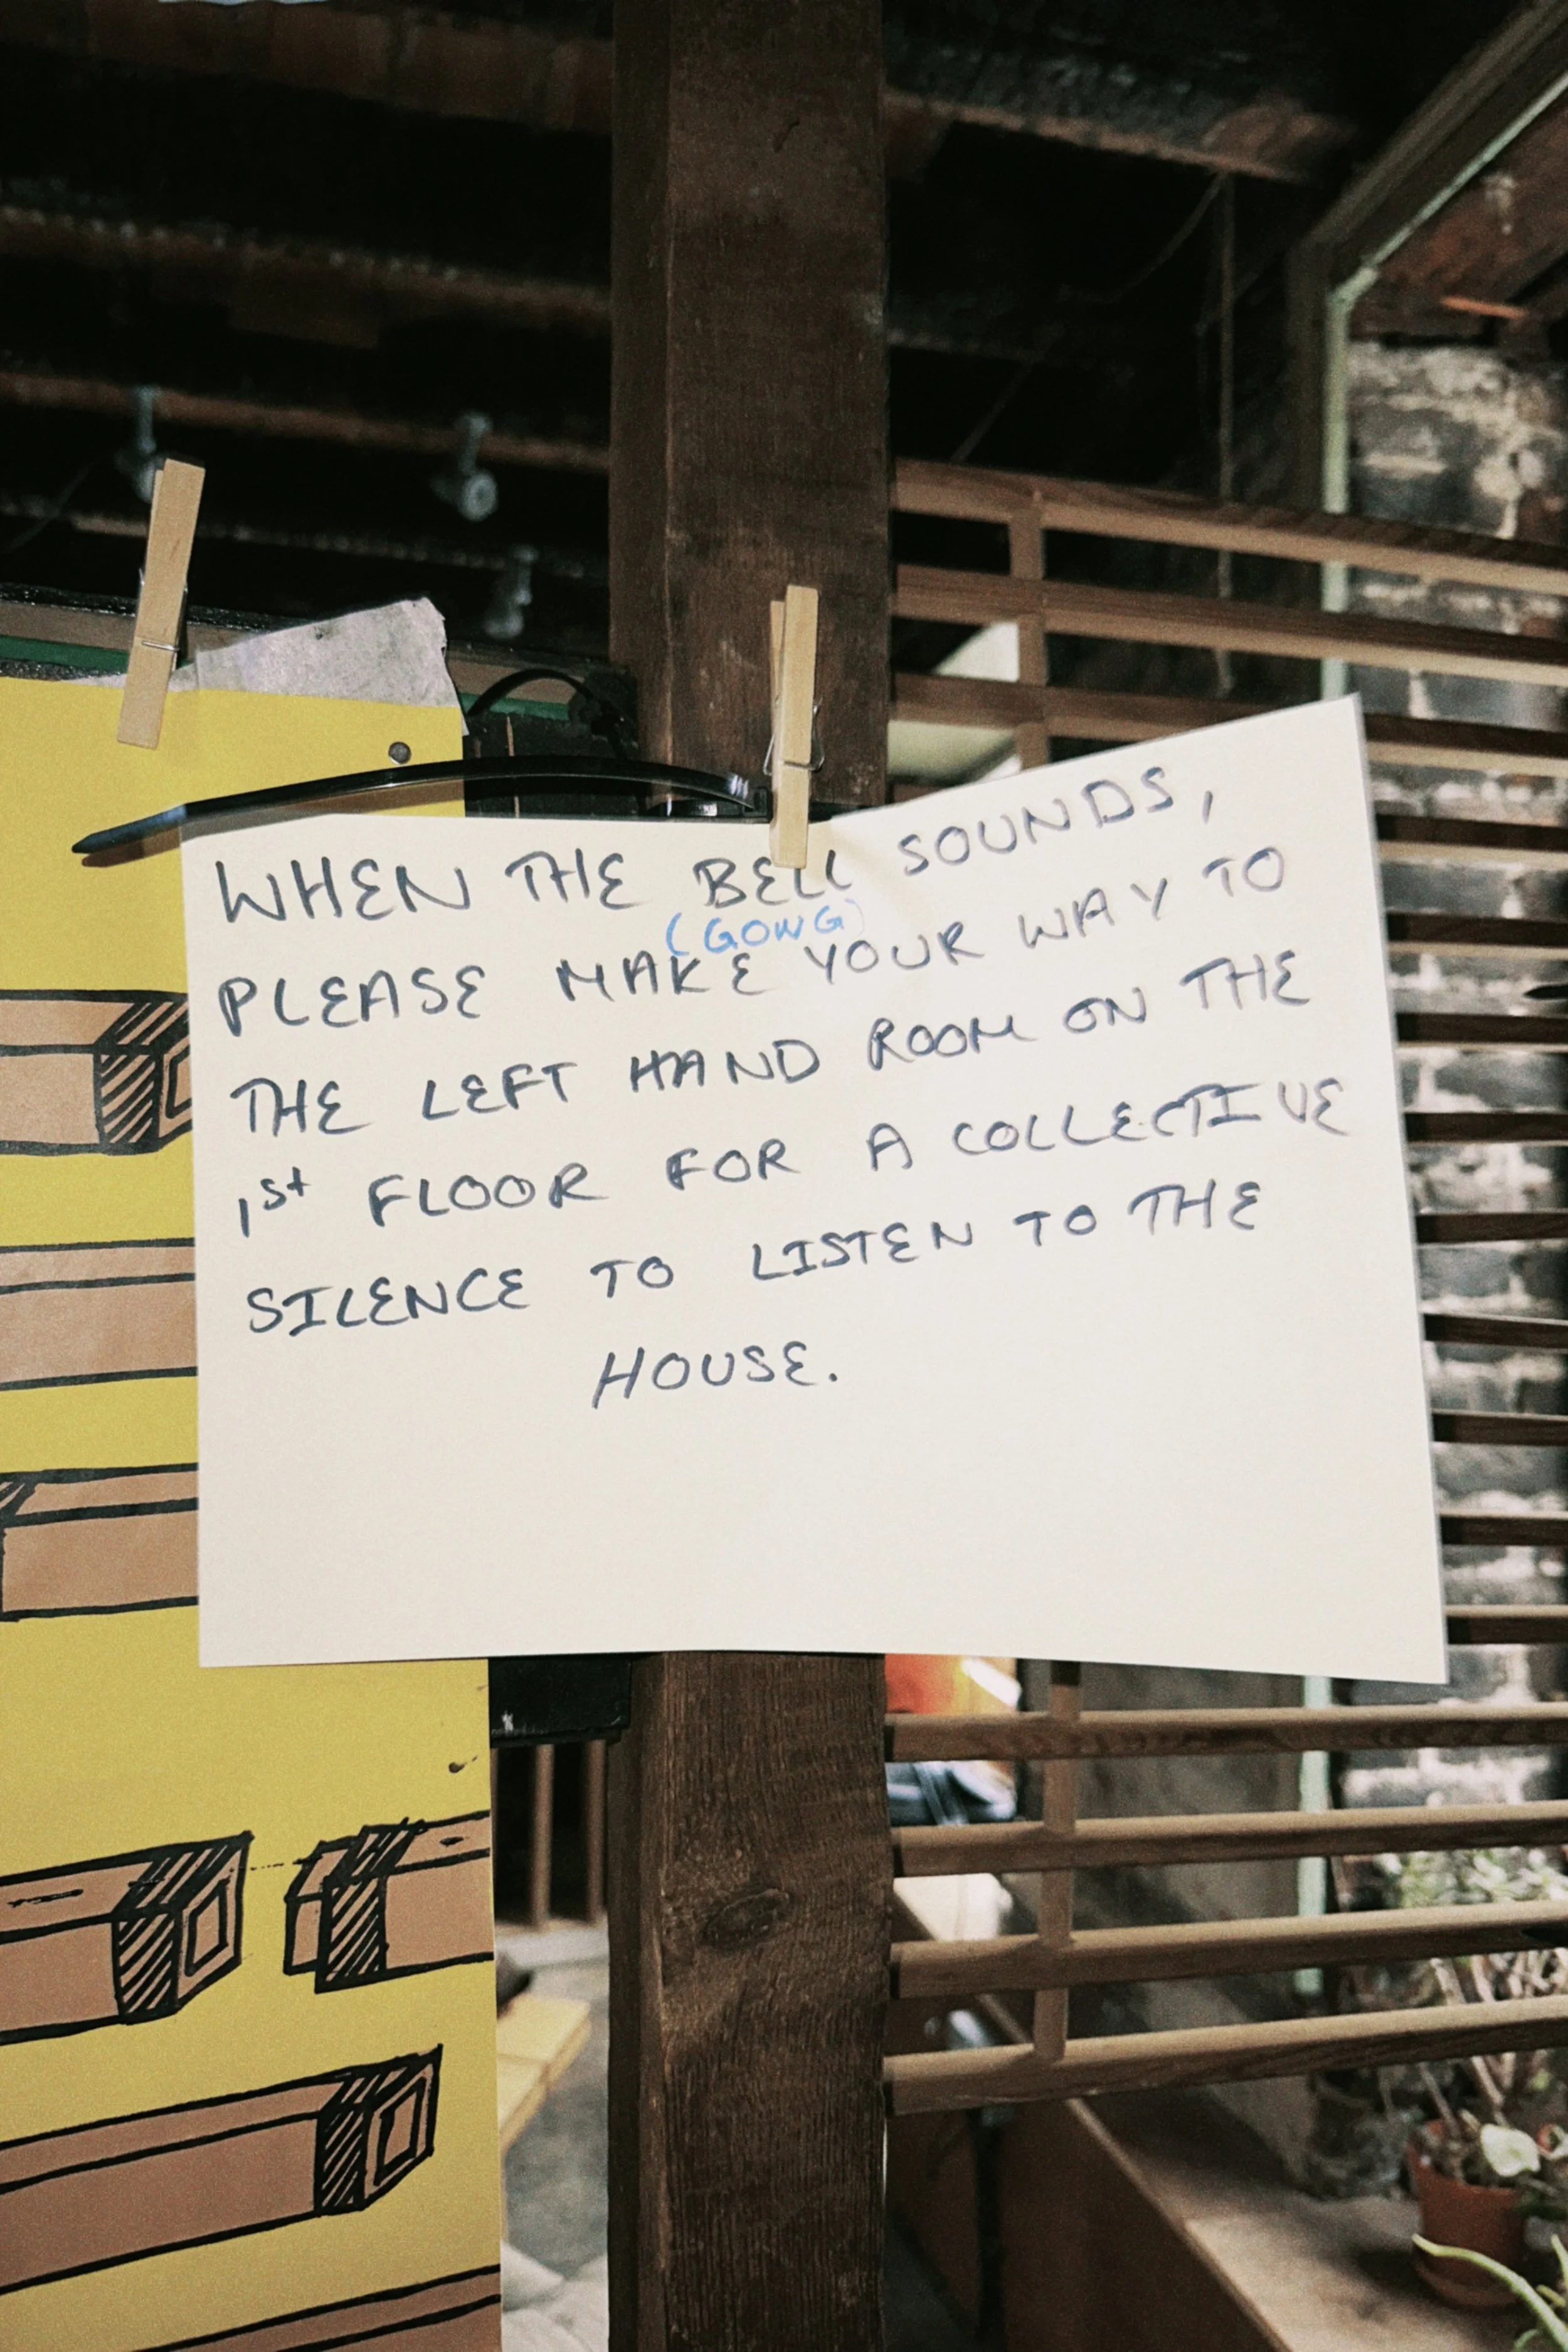 WHEN THE BELL SOUNDS,
(GONG)
PLEASE MAKE YOUR WAY TO
THE LEFT HAND ROOM ON THE
1st FLOOR FOR A COLLECTIVE
SILENCE TO LISTEN TO THE
HOUSE.